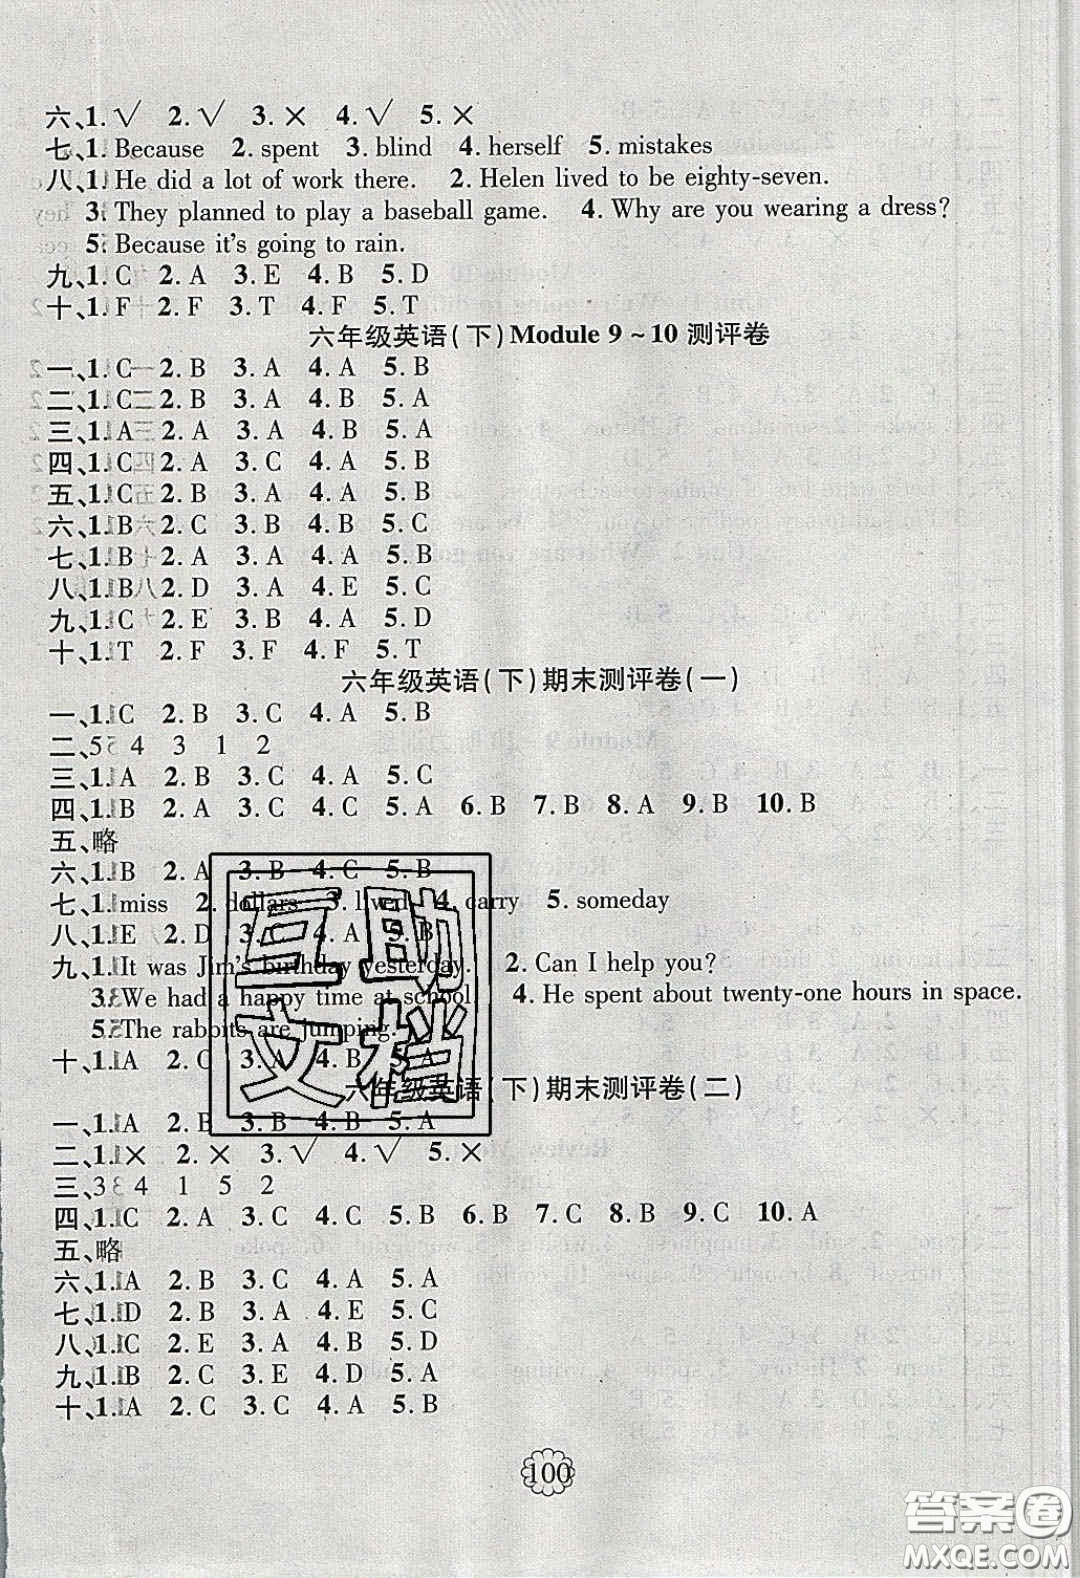 六、1. √ 2. √ 3. × 4. √ 5. ×
七、1. Because 2. spent 3. blind 4. herself 5. mistakes
八、1. He did a lot of work there. 2. Helen lived to be eighty-seven.
3. They planned to play a baseball game. 4. Why are you wearing a dress?
5. Because it's going to rain.
九、1. C 2. A 3. E 4. B 5. D
十、1. F 2. F 3. T 4. F 5. T
六年级英语(下)Module 9~10 测评卷
一、1. C 2. B 3. A 4. A 5. B
二、1. C 2. B 3. A 4. B 5. A
三、1. A 2. A 3. A 4. B 5. A
四、1. C 2. A 3. C 4. A 5. B
五、1. C 2. B 3. A 4. A 5. B
六、1. B 2. C 3. B 4. B 5. C
七、1. B 2. A 3. A 4. A 5. B
八、1. B 2. D 3. A 4. E 5. C
九、1. C 2. E 3. B 4. A 5. D
十、1. T 2. F 3. F 4. F 5. T
六年级英语(下)期末测评卷(一)
一、1. C 2. B 3. C 4. A 5. B
二、5 4 3 1 2
三、1. A 2. B 3. C 4. A 5. C
四、1. B 2. A 3. C 4. C 5. A 6. B 7. B 8. A 9. B 10. B
五、略
六、1. B 2. A 3. B 4. C 5. B
七、1. miss 2. dollars 3. lived 4. carry 5. someday
八、1. E 2. D 3. C 4. A 5. B
九、1. It was Jim's birthday yesterday. 2. Can I help you?
3. We had a happy time at school. 4. He spent about twenty-one hours in space.
5. The rabbits are jumping.
十、1. A 2. C 3. A 4. B 5. A
六年级英语(下)期末测评卷(二)
一、1. A 2. B 3. B 4. B 5. A
二、1. × 2. × 3. √ 4. √ 5. ×
三、3 4 1 5 2
四、1. C 2. A 3. C 4. C 5. B 6. B 7. C 8. B 9. C 10. A
五、略
六、1. A 2. B 3. C 4. A 5. A
七、1. D 2. B 3. A 4. E 5. C
八、1. C 2. E 3. A 4. B 5. D
九、1. B 2. C 3. E 4. D 5. A
十、1. A 2. C 3. C 4. A 5. B
互助
文档
100
答案圈
MXQE.COM